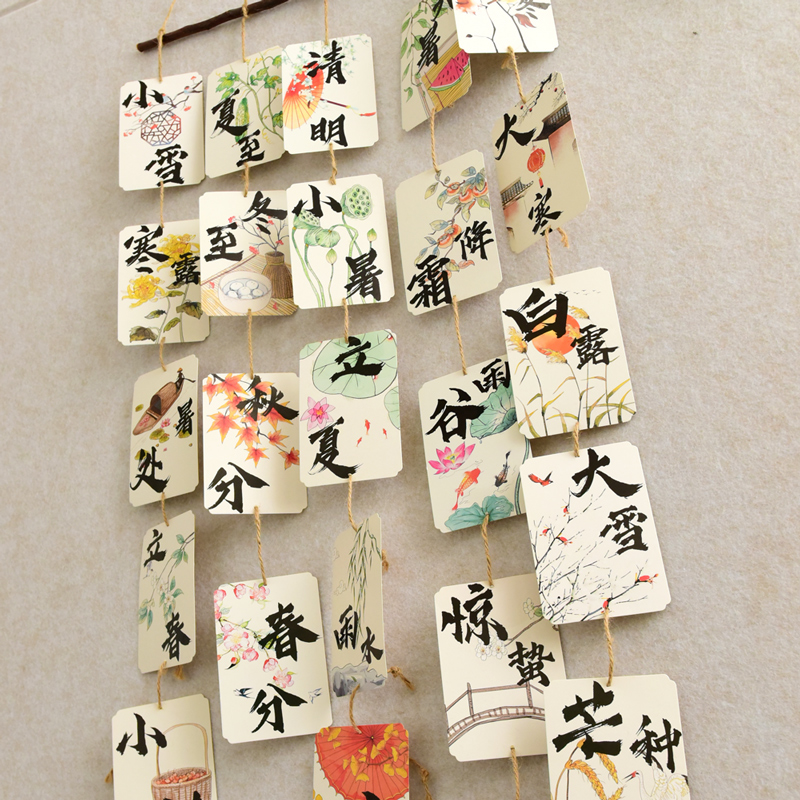 小雪
寒露
处暑
立春
小
夏至
冬至
秋分
春分
清明
小暑
立夏
雨水
暑
霜降
谷雨
惊蛰
大寒
白露
大雪
芒种